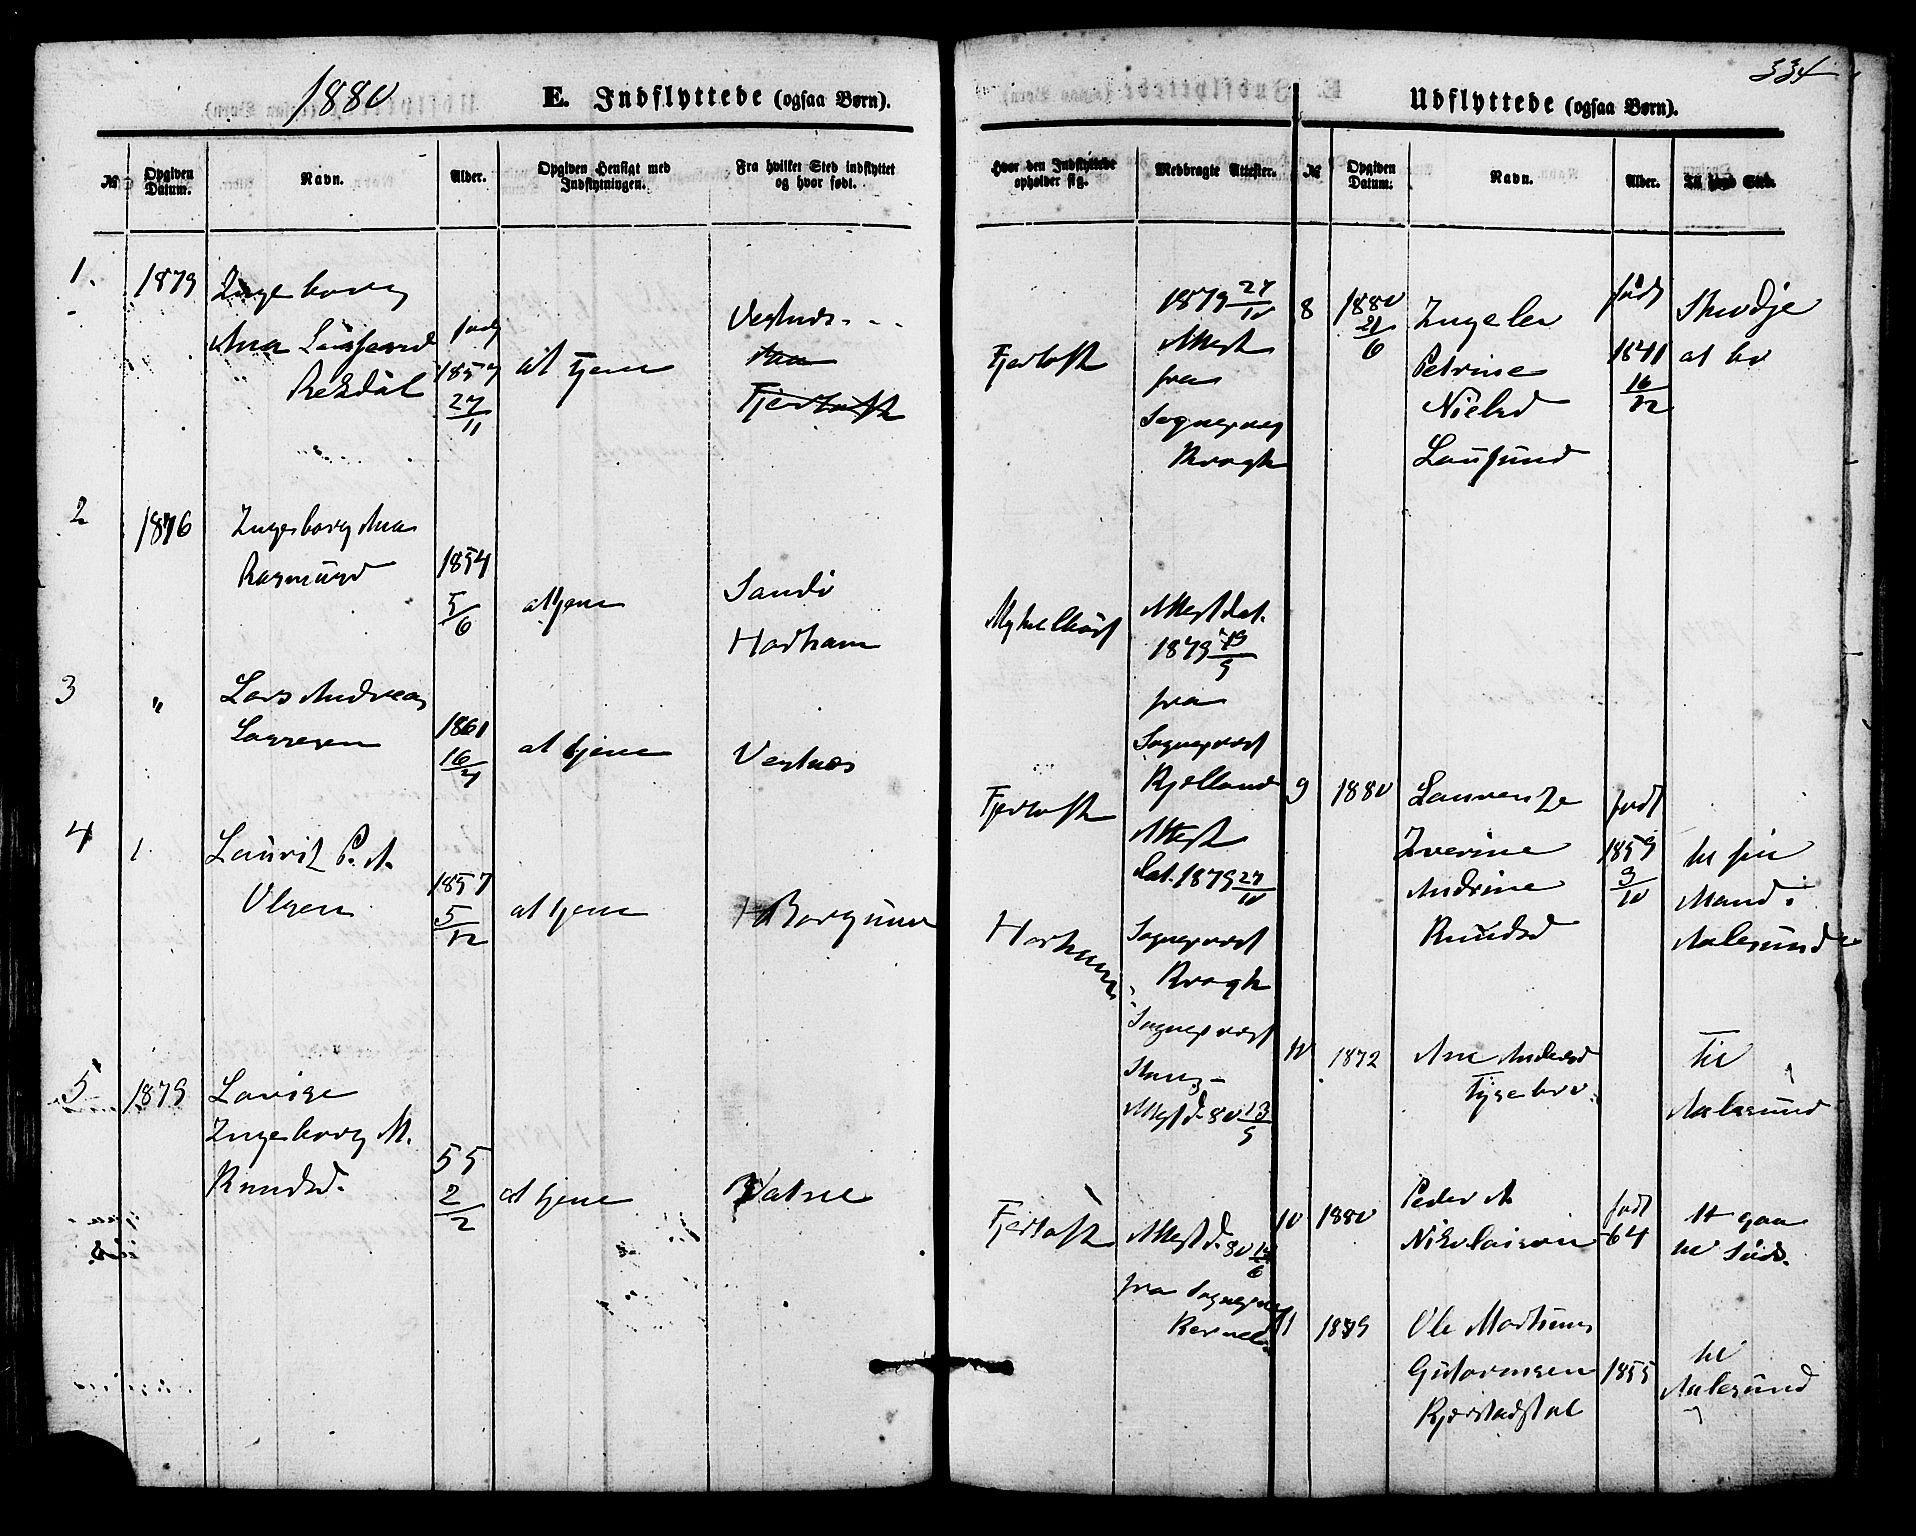 1880
E. Indflyttede (ogsaa Børn).
№
Opgiven Datum.
Navn.
Alder.
Opgiven Hensigt med Indflytningen.
Fra hvilket Sted indflyttet og hvor født.
1.
1879
Ingeborg
Ana
Rekdal
født
1857
27/11
at tjene
Vestnæs
Fjærtoft
2
1876
Ingeborg Ana
Rasmusd
1854
5/6
at tjene
Sandø
Harham
3
"
Lars Andreas
Larsesen
1861
16/4
at tjene
Vestnæs
4
Lauritz P. A.
Olsen
1857
5/12
at tjene
Borgund
5
1879
Lovise
Ingeborg M.
Knudsd.
55
2/2
at tjene
Vatne
334
Hvor den Indflyttede opholder sig.
Medbragte Attester.
Fjærtoft
1879 27/10
Attest
fra
Sogneprest
Krogh
Myklebust
Attest dat.
1879
fra
Sogneprest
Kjelland
Fjærtoft
Attest
dat. 1879 27/10
Sogneprest
Krogh
Harham
Sogneprest
Attest d. 80 13/5
Fjærtoft
Attest d. 80
fra Sognepr
Udflyttede (ogsaa Børn).
№
Opgiven Datum.
Navn.
Alder.
Til hvad Sted.
8
1880
21/6
Petrine
Nielsd
Longfund
født
1841
16/12
Skodje
at bo
9
1880
Laurentze
Iverine
Andrine
Knudsd
født
1859
3/10
til sin
Mand i
Aalesund
10
1872
Ane Andersd
til
Aalesund
10
1880
Peder A
Nikolaison
født
64
At gaa
til Søds.
11
1879
Ole Martinus
Gutormsen
Kjerstadstøl
1855
til
Aalesund